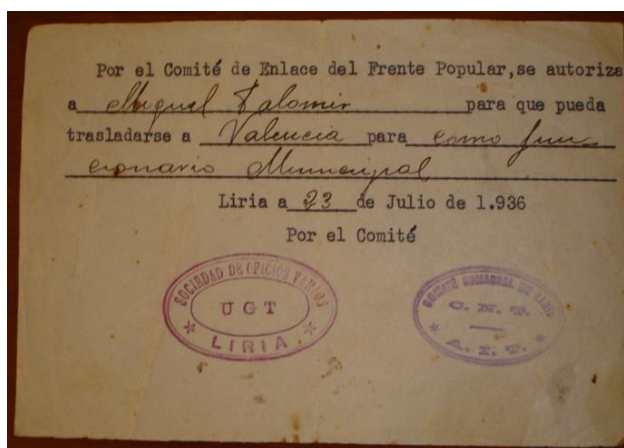 Por el Comité de Enlace del Frente Popular,se autoriza
a Miguel Palomir para que pueda
trasladarse a Valencia para como fun
cionario Municipal
Liria a 23 de Julio de 1.936
Por el Comité
SOCIEDAD DE OFICIOS VARIOS
UGT
LIRIA
COMITÉ COMARCAL DE LIRIA
C. N. T.
A. I. T.